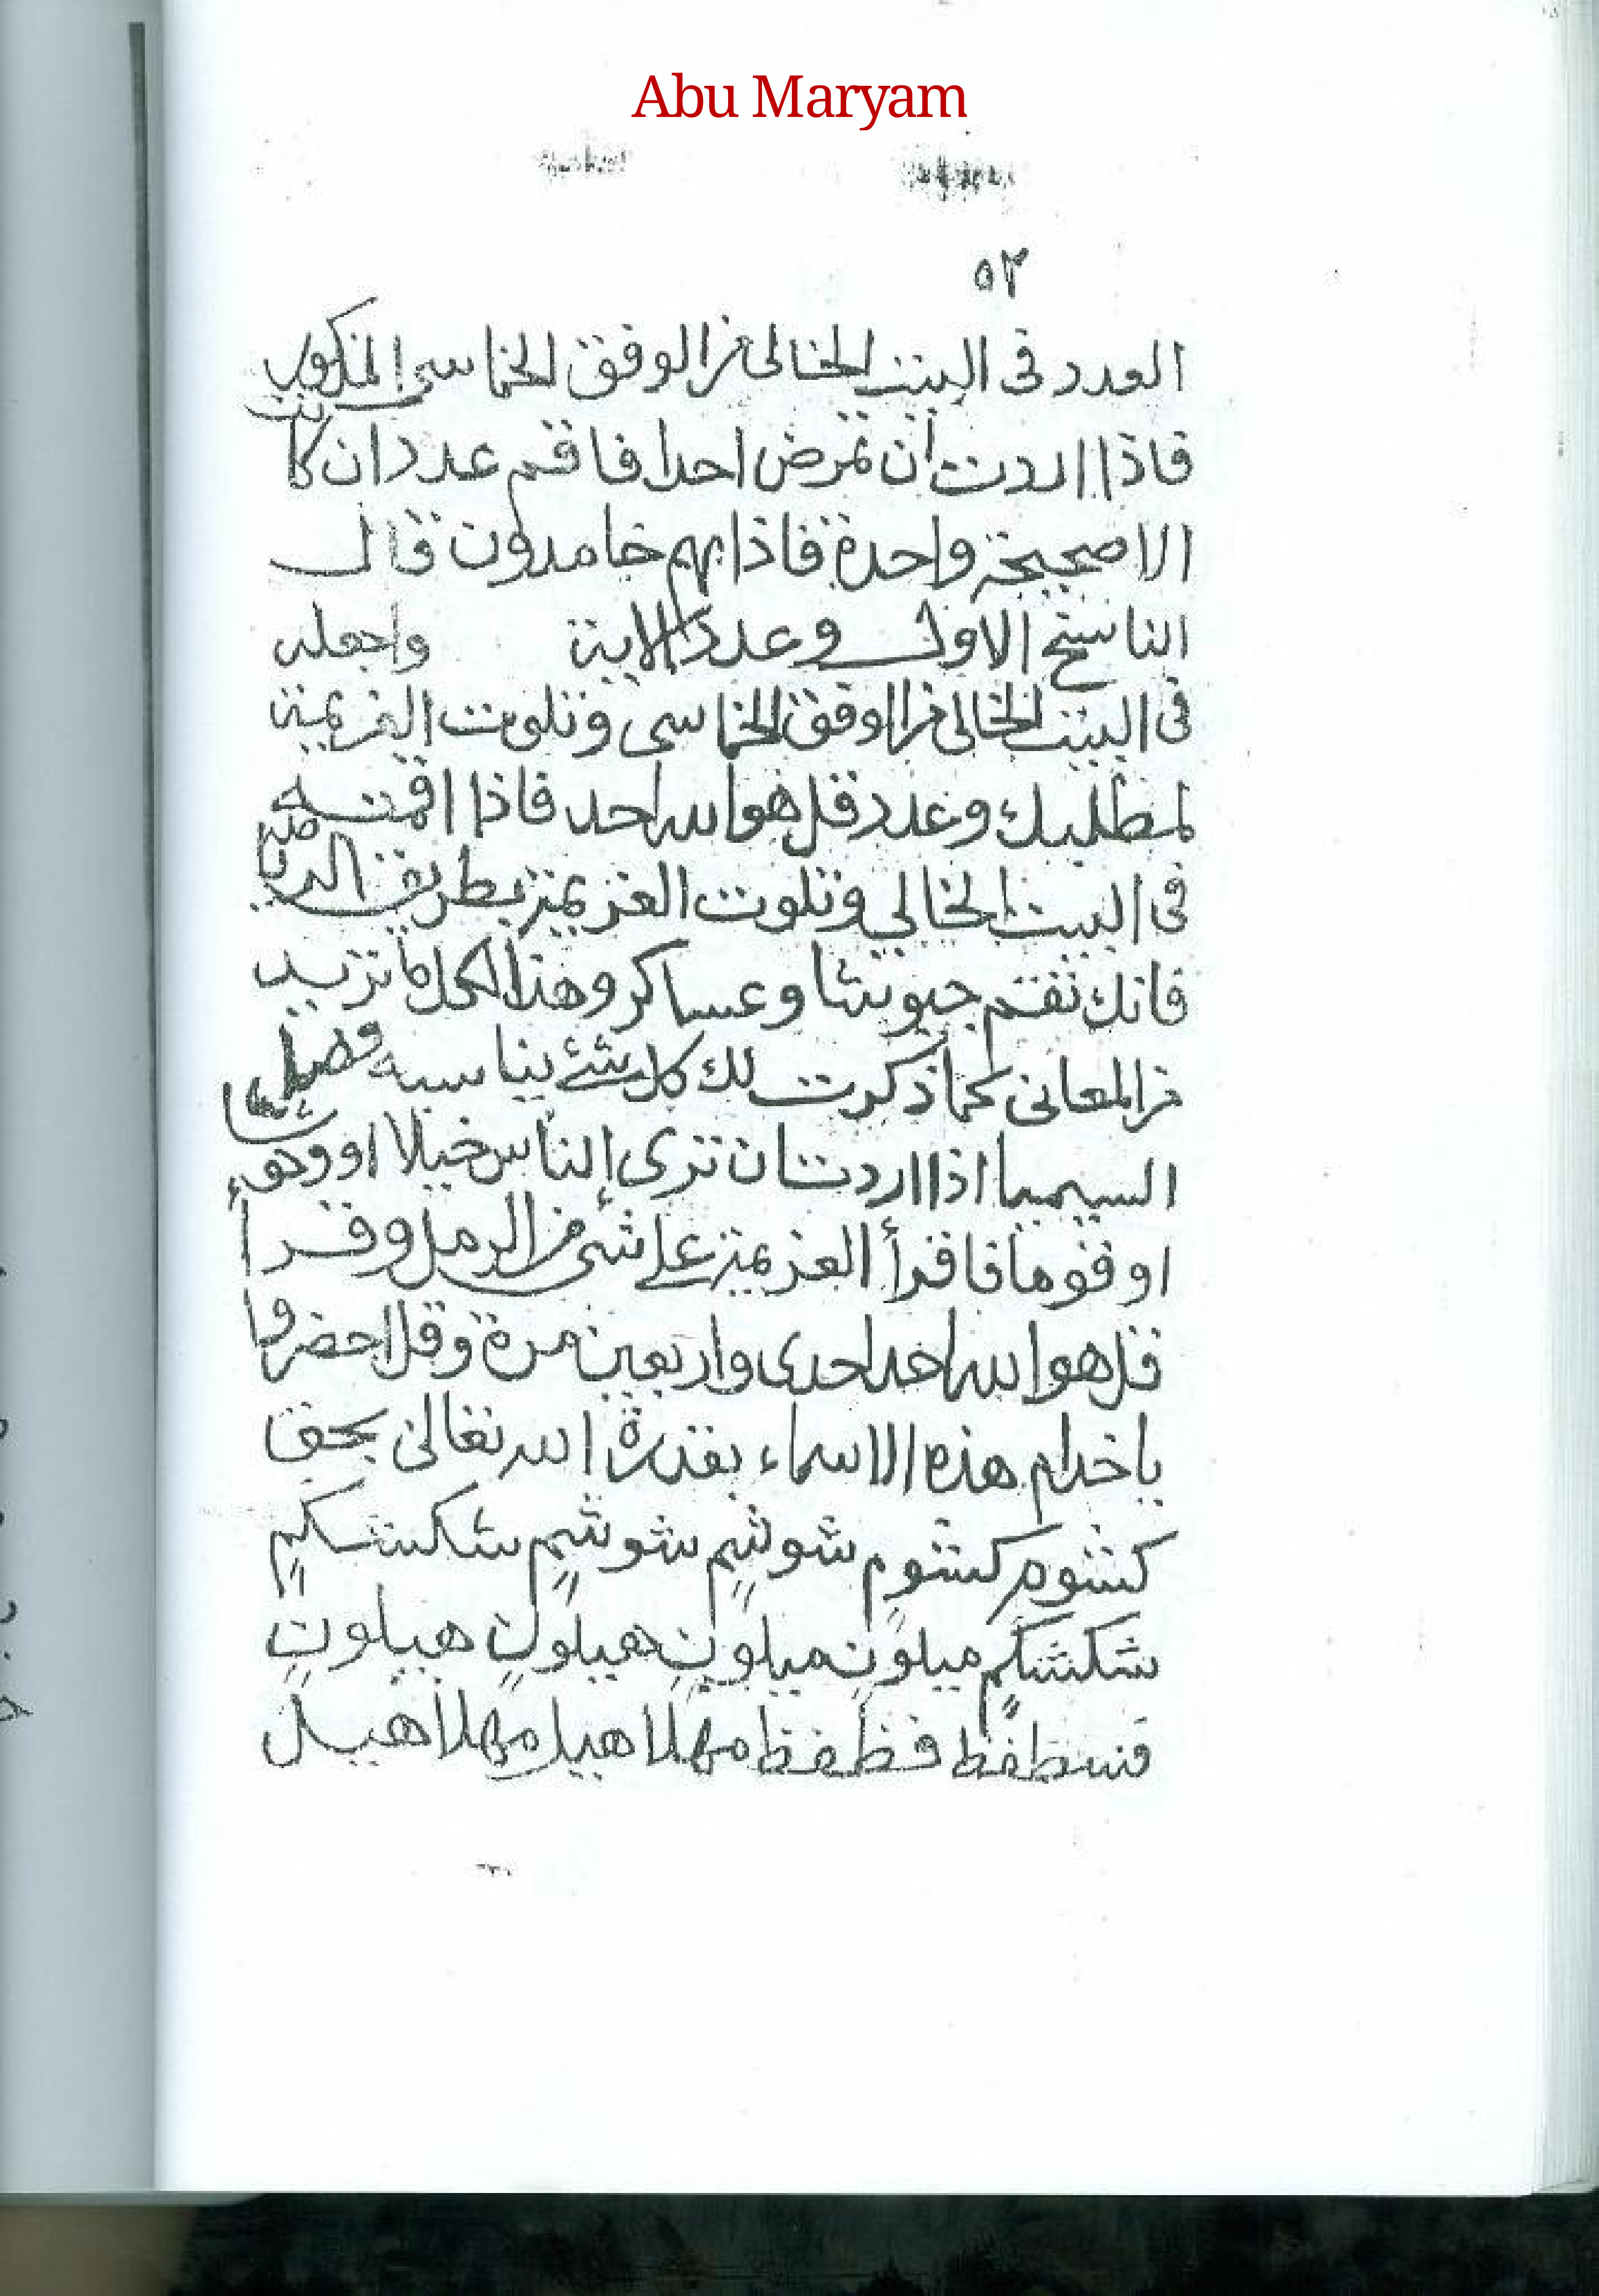 Abu Maryam
٥٢
العدد فى البيت الخالى من الوفق الخماسى المذكور
فاذا اردت أن تمرض احدا فاقم عدد ان كانت
الا صيحة واحدة فاذا هم خامدون قال
الناسخ الاول وعدد الاية واجعله
فى البيت الخالى من الوفق الخماسى وتلوت العزيمة
لمطلبك وعدد قل هو الله احد فاذا اقمته
فى البيت الخالي وتلوت العزيمة بطريق الرياضة
فانك تقتم جيوشا وعساكر وهذا لكل ما تريد
من المعانى كما ذكرت لك كل شئ يناسبه فصل
السيميا اذا اردت ان ترى الناس خيلا او وحو شا
او قوما فاقرأ العزيمة على شئ من الرمل وقرأ
قل هو الله احد احدى واربعين مرة وقل احضروا
ياخدام هذه الاسماء بقدرة الله تعالى بحق
كشوم كشوم شوشيم شوشيم شكشكيم
شكشكم ميلون ميلون هميلون هيلون
فظ فظ مهلا هيل مهلا هيل